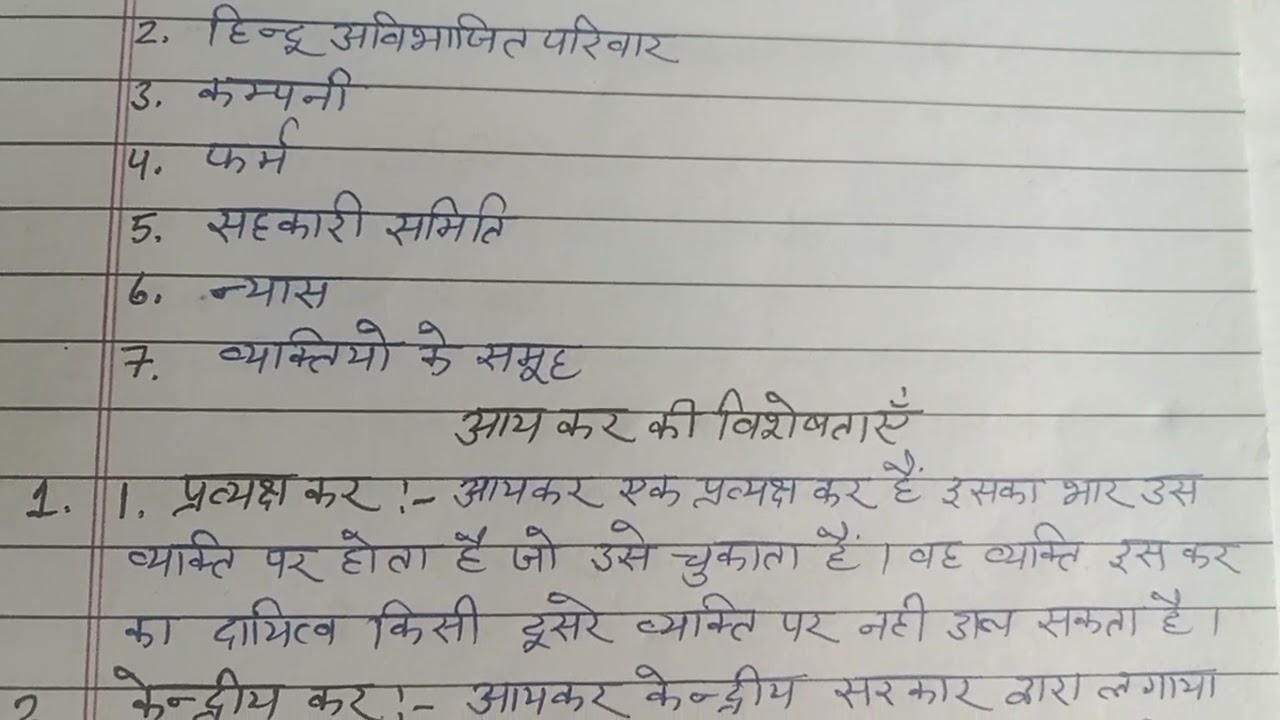 2. हिन्दू अविभाजित परिवार
3. कम्पनी
4. फर्म
5. सहकारी समिति
6. न्यास
7. व्यक्तियो के समूह
आय कर की विशेषताएँ
1. 1. प्रत्यक्ष कर :- आयकर एक प्रत्यक्ष कर हैं इसका भार उस
व्यक्ति पर होता है जो उसे चुकाता हैं। वह व्यक्ति इस कर
का दायित्व किसी दूसरे व्यक्ति पर नही डाल सकता है।
2 केन्द्रीय कर :- आयकर केन्द्रीय सरकार द्वारा लगाया